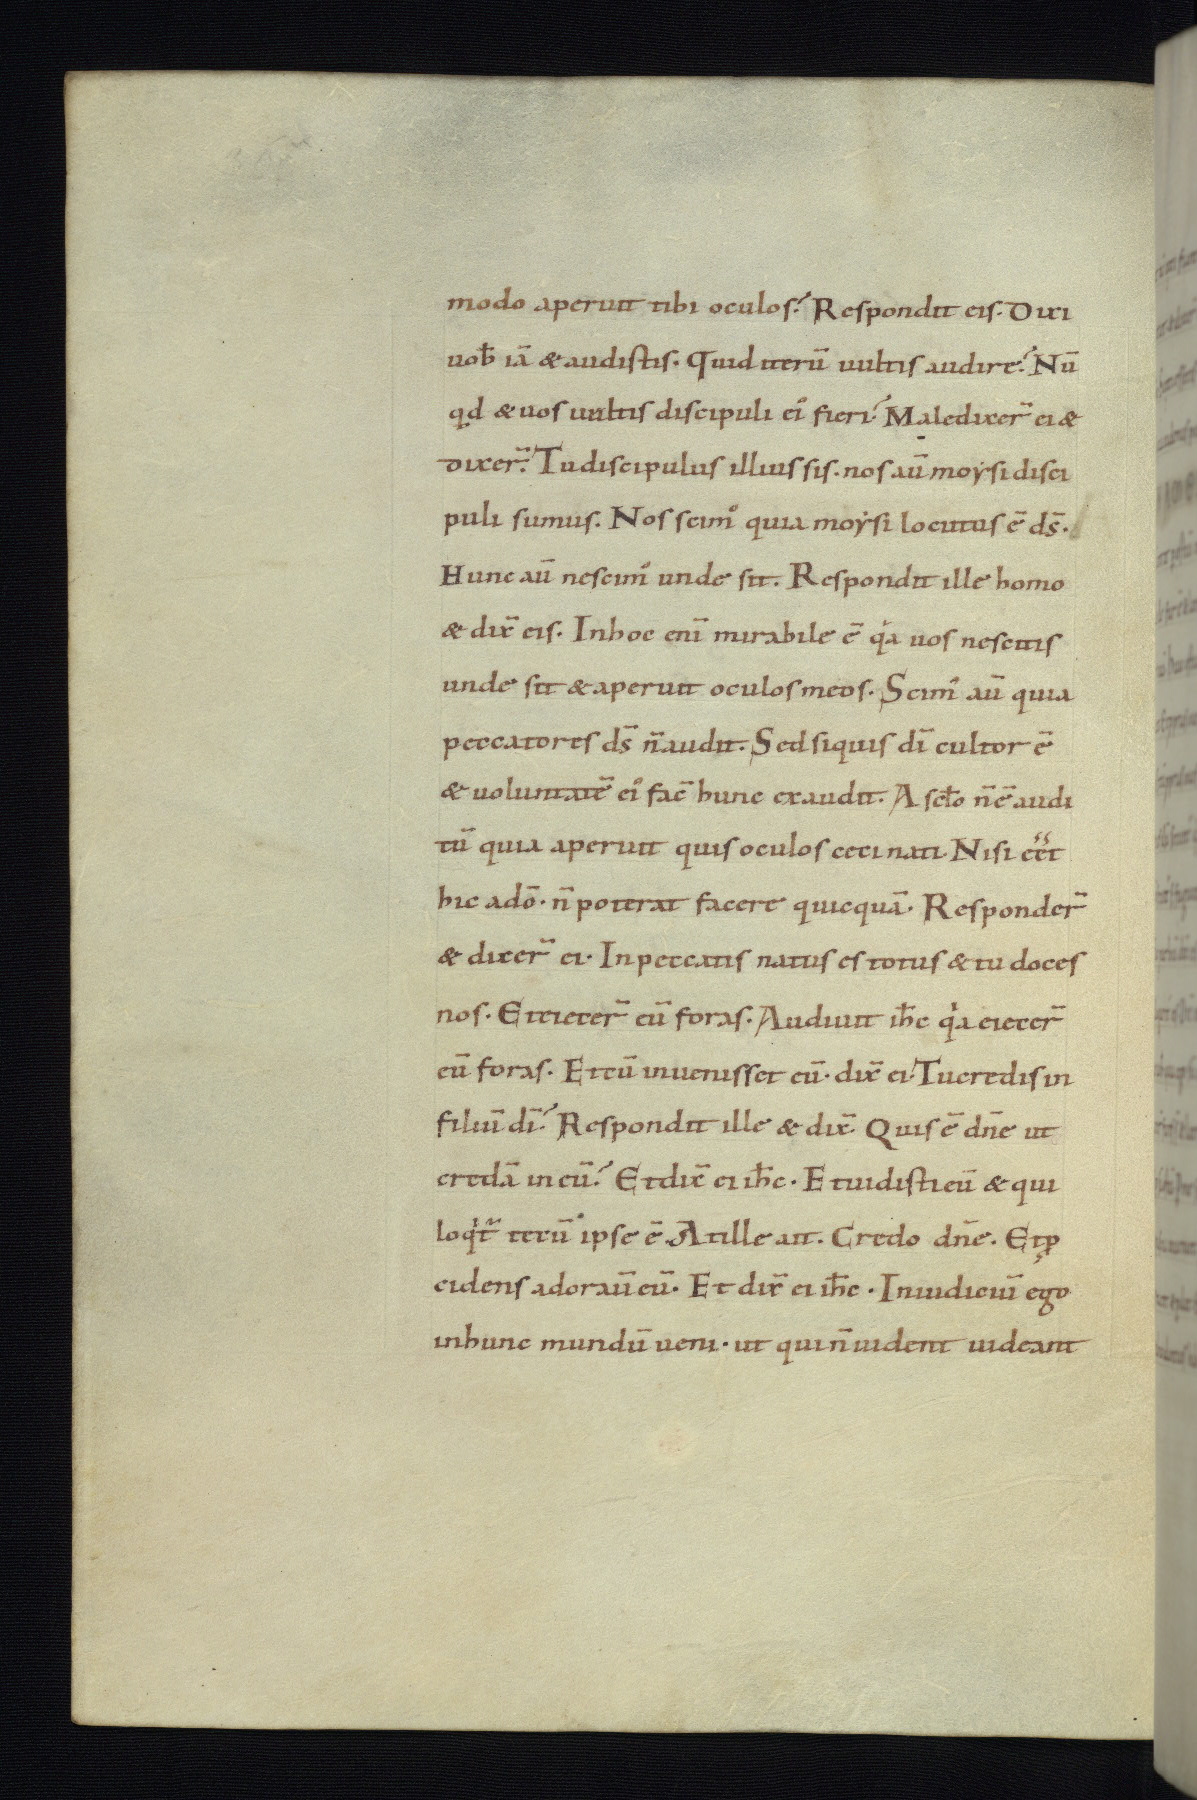 modo aperuit tibi oculos? Respondit eis. Dixi
uob̄ iā & audistis. Quid iterū uultis audire? Nū
qd & uos uultis discipuli ei᾽ fieri? Maledixer̄ ei &
dixer̄. Tu discipulus illius sis. nos aū moẏsi disci
puli sumus. Nos scim᾽ quia moẏsi locutus ē ds̄.
Hunc aū nescim᾽ unde sit. Respondit ille homo
& dix̄ eis. In hoc enī mirabile ē qa uos nescitis
unde sit & aperuit oculos meos. Scim᾽ aū quia
peccatores ds̄ n̄ audit. Sed siquis dī cultor ē
& uoluntatē ei᾽ fac̄ hunc exaudit. A sc̄lo n̄ ē audi
tū quia aperuit quis oculos ceci nati. Nisi eēt
hic a dō. n̄ poterat facere quicquā. Responder̄
& dixer̄ ei. In peccatis natus es totus & tu doces
nos. Et eiecer̄ eū foras. Audiuit ih̄c qa eiecer̄
eū foras. Et cū inuenisset eū. dix̄ ei. Tu credis in
filiū dī? Respondit ille & dix̄. Quis ē dn̄e ut
credā in eū? Et dix̄ ei ih̄c. Et uidisti eū & qui
loqt̄ tecū ipse ē. At ille ait. Credo dn̄e. Et p
cidens adorau̅ eū. Et dix̄ ei ih̄c. In iudiciū ego
in hunc mundū ueni. ut qui n̄ uident uideant